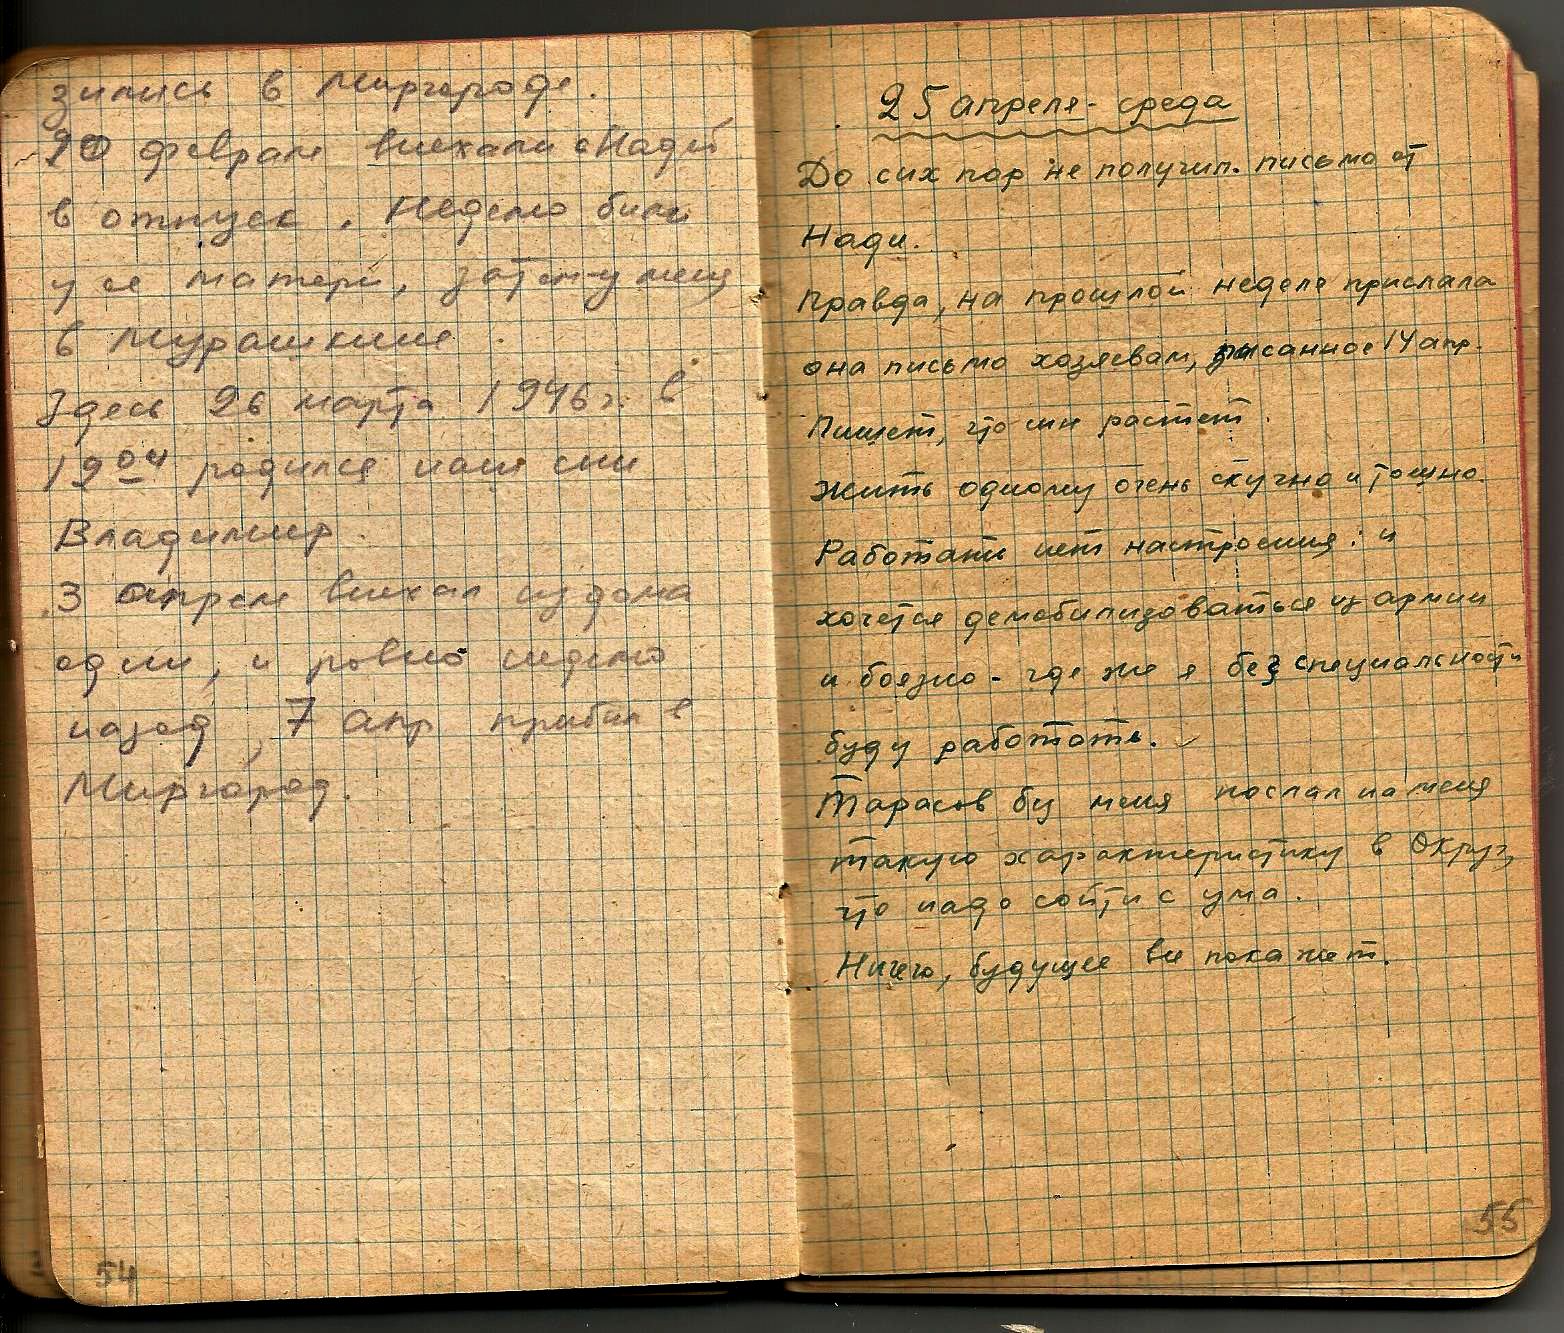 зились в Миргороде.
20 февраля выехали с Надей
в отпуск. Неделю были
у ее матери, затем у меня
в Мурашкине.
Здесь 26 марта 1946 г. в
19 04 родился наш сын
Владимир.
3 апреля выехал из дома
один, и ровно неделю
назад, 7 апр прибыл в
Миргород.
54
25 апреля - среда
До сих пор не получил письма от
Нади.
Правда, на прошлой неделе прислала
она письмо хозяевам, писанное 14 апр.
Пишет, что сын растет.
Жить одному очень скучно и тошно.
Работать нет настроения: и
хочется демобилизоваться из армии
и боязно - где же я без специальности
буду работать.
Тарасов без меня послал на меня
такую характеристику в Округ,
что надо сойти с ума.
Ничего, будущее все покажет.
55